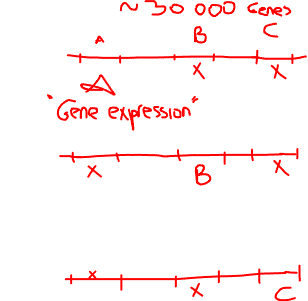 ~30 000 Genes
A B C
X X
"Gene expression"
X B X
X X C